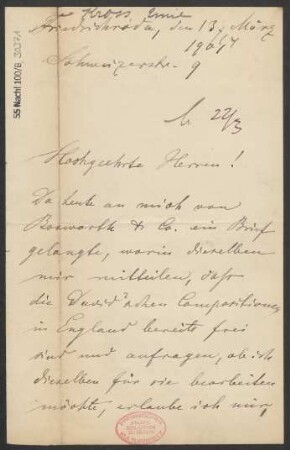 Kross, Emil
Friedrichroda, den 13. März
1907
Schweizerstr. 9
22/3
Hochgeehrte Herren!
Da heute an mich von
Bosworth & Co. ein Brief
gelangte, worin dieselben
mir mitteilen, daß
die David'schen Compositionen
in England bereits frei
sind und anfragen, ob ich
dieselben für sie bearbeiten
möchte, erlaube ich mir,
55 Nachl 100/B